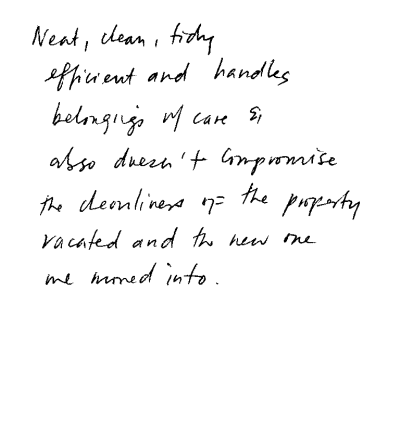 Neat, clean, tidy
efficient and handles
belongings w/ care &
also doesn't compromise
the cleanliness of the property
vacated and the new one
we moved into.